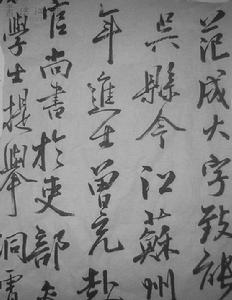 范成大字致能
吴縣今江蘇州
年進士曾充赴
官尚書於吏部
學士提舉洞霄